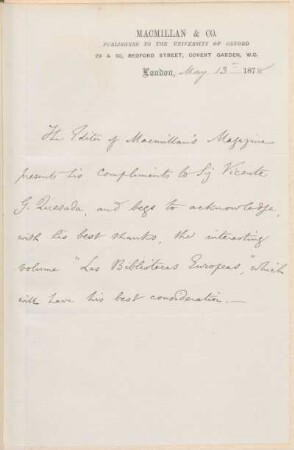 MACMILLAN & CO.
PUBLISHERS TO THE UNIVERSITY OF OXFORD
29 & 30, BEDFORD STREET, COVENT GARDEN, W.C.
London, May 13th 187
The Editor of Macmillan's Magazine
presents his compliments to Sig Vicente
G. Quesada, and begs to acknowledge,
with his best thanks, the interesting
volume "Las Bibliotecas Europeas," which
will have his best consideration.—